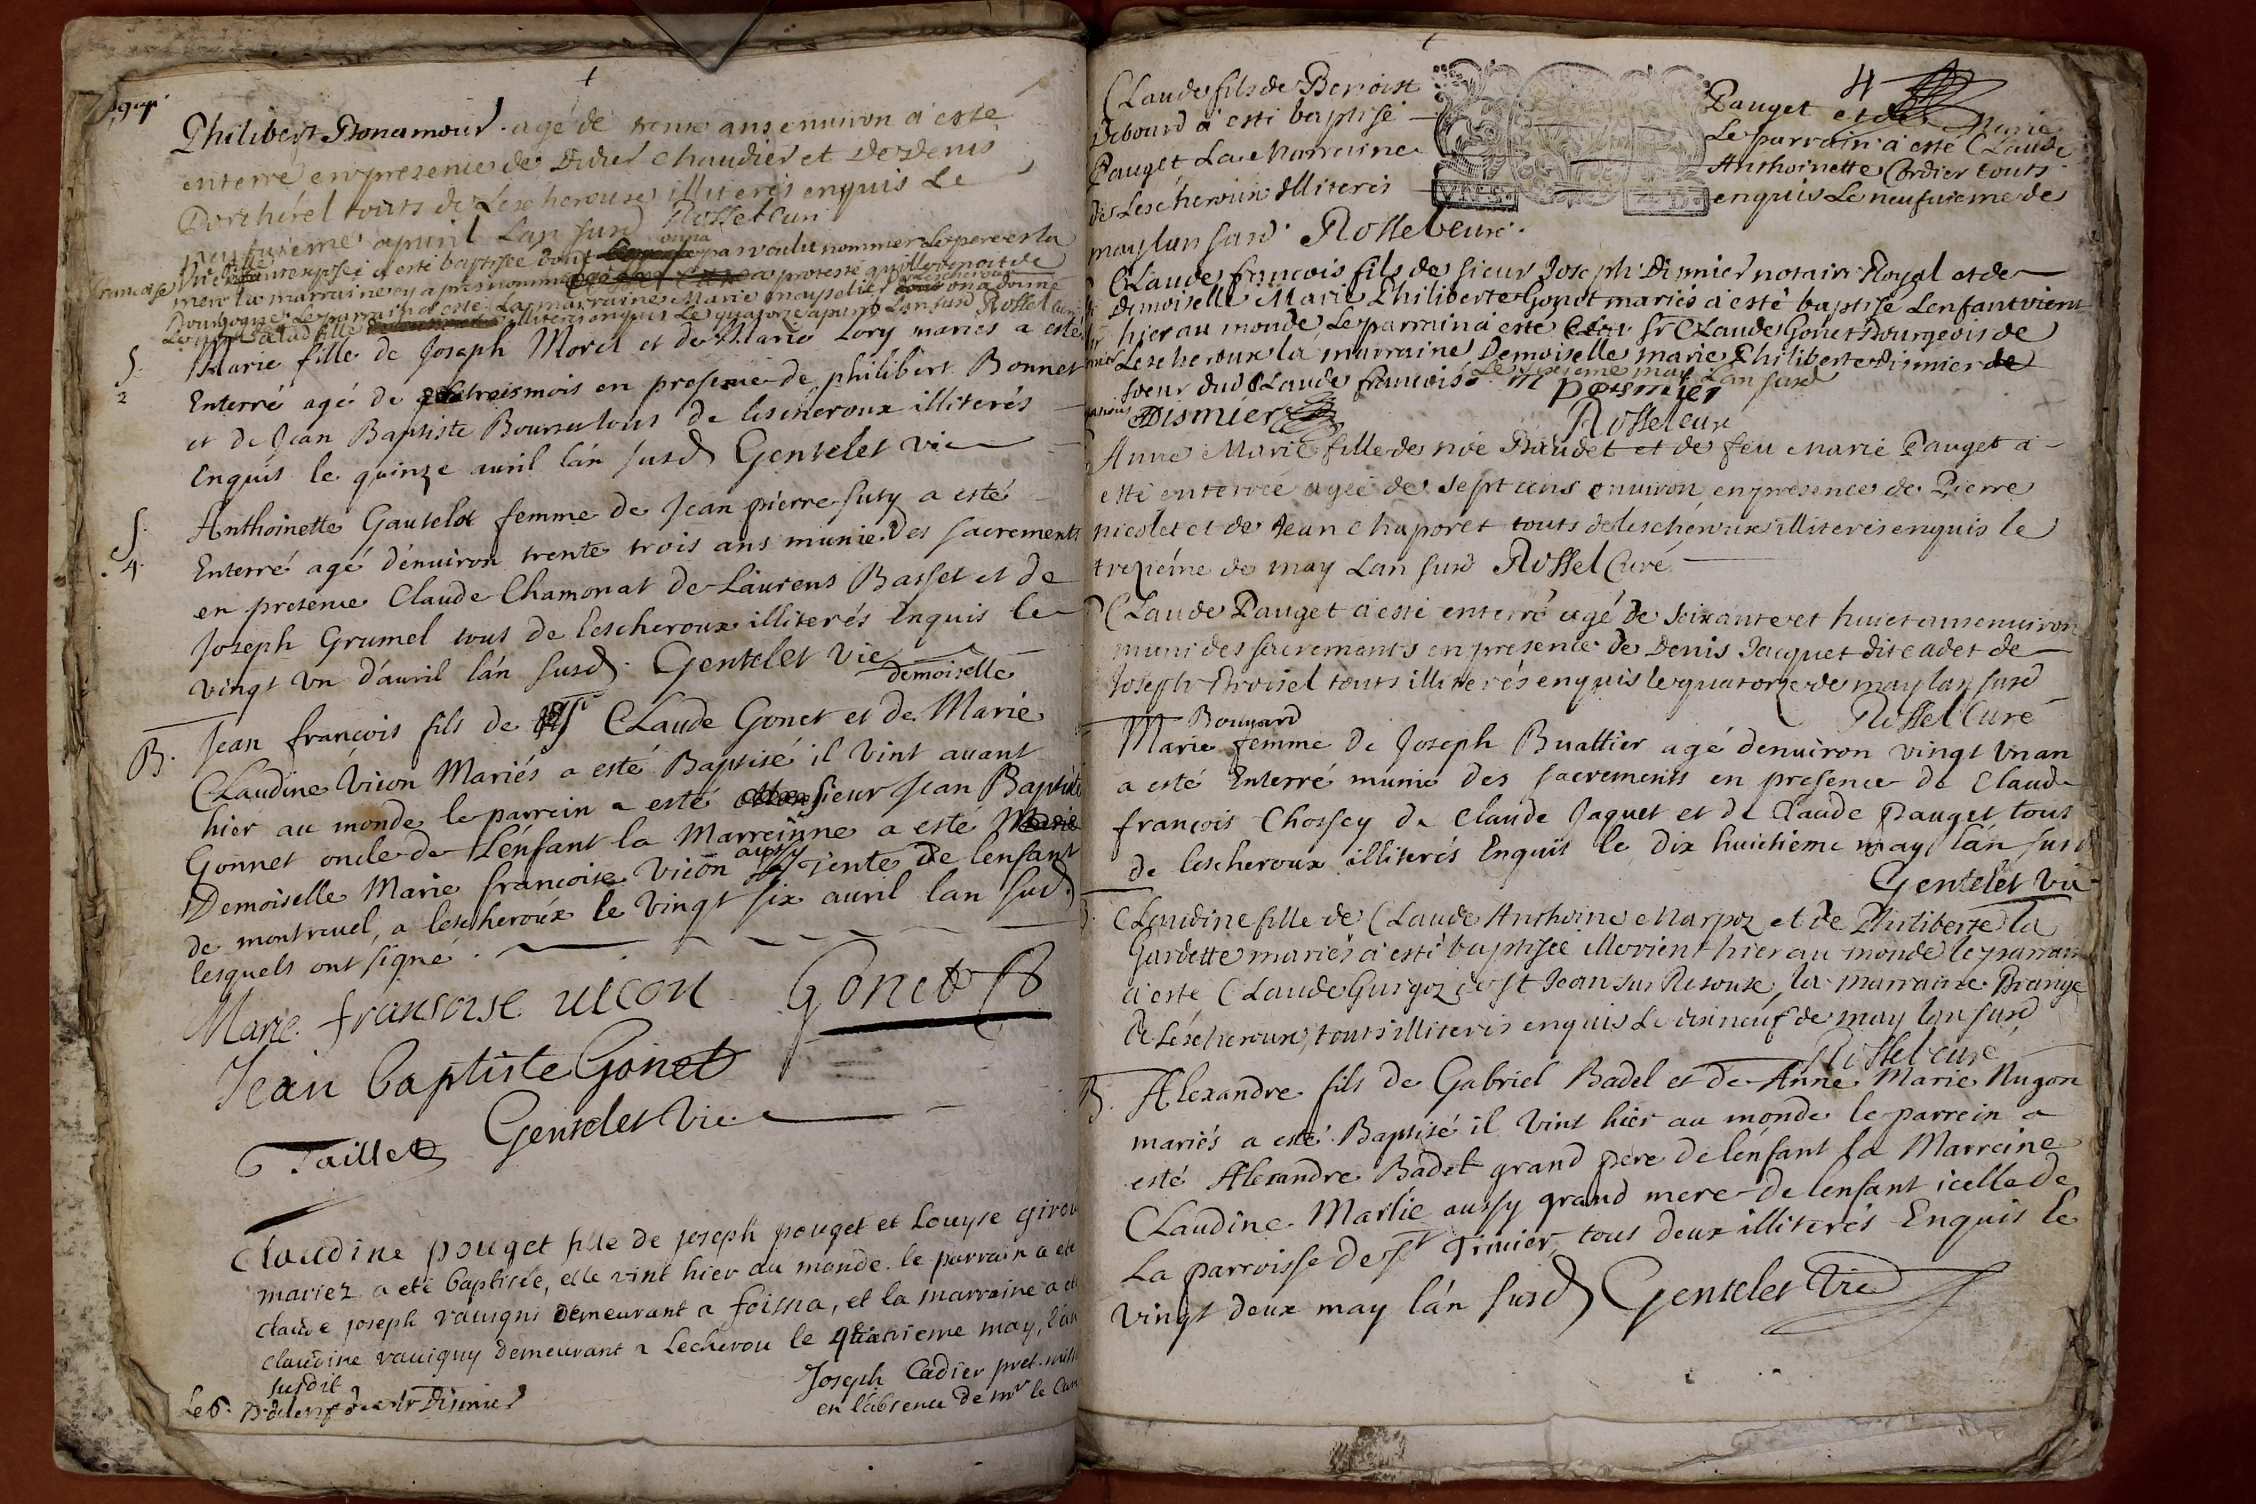 Philibert Bonamour agé de trente ans enuiron a esté
enterré en presence de Didier Chaudier et de Denis
Porcherel touts de Lescheroux illiteres enquis Le
neufuieme apuril Lan susd Rossel Curé
a esté baptisée dont pa voulu nommer Le pere et la
mere la marraine
Bourgogne Le parrain a esté La marraine Marie
illiteres enquis Le quatorze apuril Lan susd Rossel Curé
S.
2
Marie fille de Joseph Morel et de Marie Lory mariés a esté
Enterré agé de trois mois en presence de philibert Bonnet
et de Jean Baptiste Bourru tous de lescheroux illiterés
Enquis le quinze auril l'an susd Gentelet Vic
S.
4.
Anthoinette Gautelot femme de Jean pierre Suty a esté
Enterré agé d'enuiron trente trois ans munie des sacrements
en presence Claude Chamonat de Laurens Basset et de
Joseph Grumel tous de lescheroux illiterés Enquis le
vingt vn d'auril l'an susd. Gentelet Vic
demoiselle
B. Jean françois fils de Sr Claude Gonet et de Marie
Claudine Vicon Mariés a esté Baptisé il Vint auant
hier au monde le parrein a esté sieur Jean Baptiste
Gonnet oncle de L'enfant la Marreinne a este
Demoiselle Marie françoise Vicon aussy tente de lenfant
de montreuel, a lescheroux le Vingt six auril lan susd.
lesquels ont signé.
Marie fransoise uicon Gonet
Jean baptiste Gonet
Taillet Gentelet Vic
Claudine pouget fille de joseph pouget et Louyse girou
mariez a eté baptisée, elle vint hier au monde. le parrain a eté
claude joseph rauigni demeurant a foissia, et la marraine a eté
claudine rauiguy demeurant a Lecherou le quatrieme may, l'an
susdit
Joseph Cadier pret.
en l'absence de mr le Curé
Le 6. B. de lenf de Sr Disnier
4
Claude fils de Benoist Pauget et de Marie
Debourd a esti baptisé Le parrain a esté Claude
Pauget La Marraine Anthoinette Cordier touts
de Lescheroux illiteres enquis Le neufuieme de
may lan susd Rossel curé.
Claude françois fils de sieur Joseph Disnier notaire Royal et de
Demoiselle Marie Philiberte Gonot mariés a esté baptisé Lenfant vient
hier au monde Le parrain a esté Sr Claude Gonet Bourgeois de
Lescheroux la marraine Demoiselle marie Philiberte Disnier
soeur dud Claude françois Le sixieme may Lan susd
Disnier
Rossel cure
Anne Marie fille de Noé Baudet et de feu Marie Pauget a
esté enterrée agée de sept ans enuiron en presence de Pierre
nicolet et de Jean Chaporet touts de lescheroux illiteres enquis le
trezieme de may Lan susd Rossel Curé
Claude Pauget a esté enterré agé de soixante et huict ans enuiron
muni des sacrements en presence de Denis Jacquet dit cadet de
Joseph Broisel touts illiterés enquis le quatorze de may lan susd
Rossel Curé
Bouuard
Marie femme de Joseph Buattier agé denuiron vingt vn an
a esté Enterré munie des sacrements en presence de Claude
françois Chossey de Claude Jaquet et de Claude Pauget tous
de lescheroux illiterés Enquis le dix huictieme may l'an susd
Gentelet Vic
Claudine fille de Claude Anthoine Marpoz et de Philiberte la
Gardette mariés a esté baptisée elle vient hier au monde le parrain
a esté Claude Gurgoz de St Jean sur Resouse, la marraine
de Lescheroux, touts illiteres enquis Le dixneuf de may lan susd
Rossel curé
B. Alexandre fils de Gabriel Badel et de Anne Marie Nugon
mariés a esté Baptisé il Vint hier au monde le parrein a
esté Alexandre Badel grand pere de lénfant la Marreine
Claudine Marlié aussy grand mere de lenfant icelle de
La parroisse de St Trivier, tous deux illiterés Enquis le
vingt deux may l'an susd Gentelet Vic